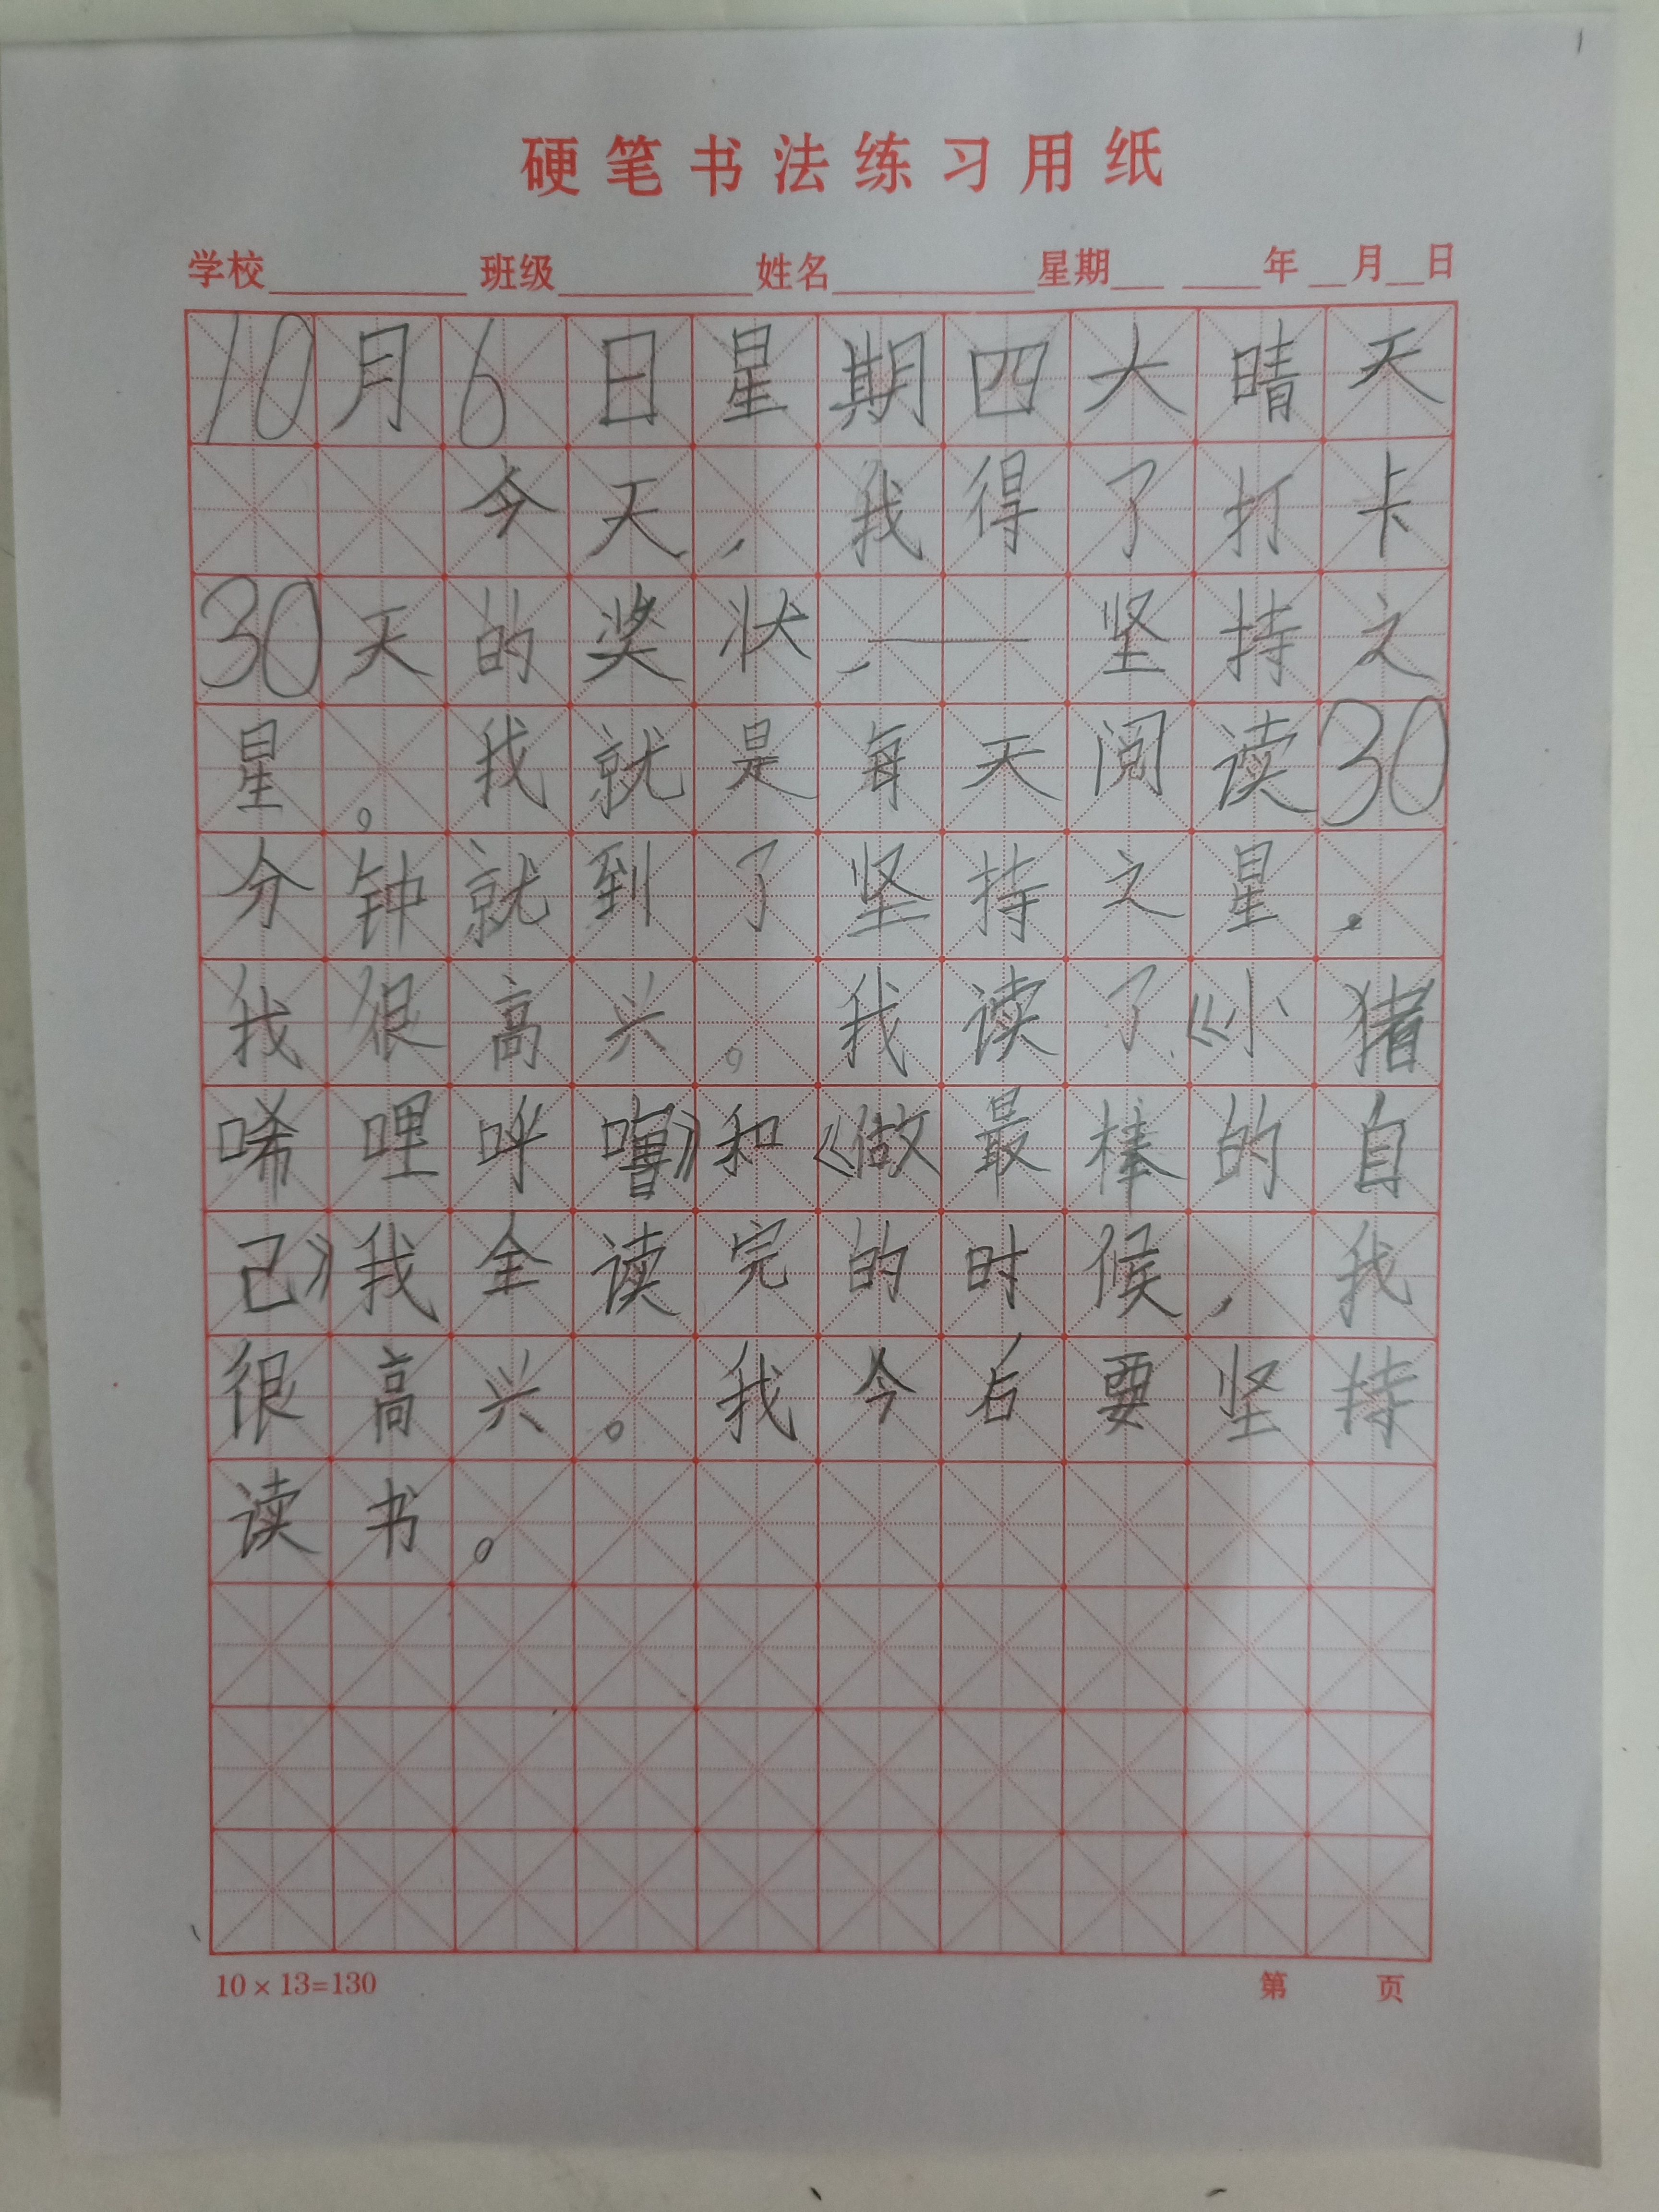 硬笔书法练习用纸
学校 班级 姓名 星期 年 月 日
10月6日星期四大晴天
今天，我得了打卡
30天的奖状，——坚持之
星。我就是每天阅读30
分钟就到了坚持之星。
我很高兴。我读了《小猪
唏哩呼噜》和《做最棒的自
己》我全读完的时候，我
很高兴。我今后要坚持
读书。
10×13=130 第 页